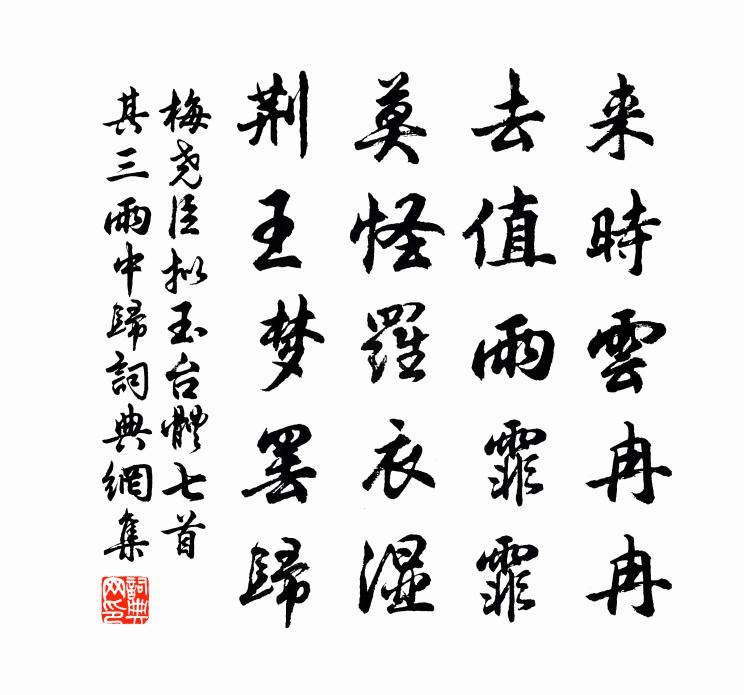 来時雲冉冉
去值雨霏霏
莫怪羅衣湿
荆王梦罢歸
梅尧臣拟玉台體七首
其三雨中歸詞典網集
詞典
网印